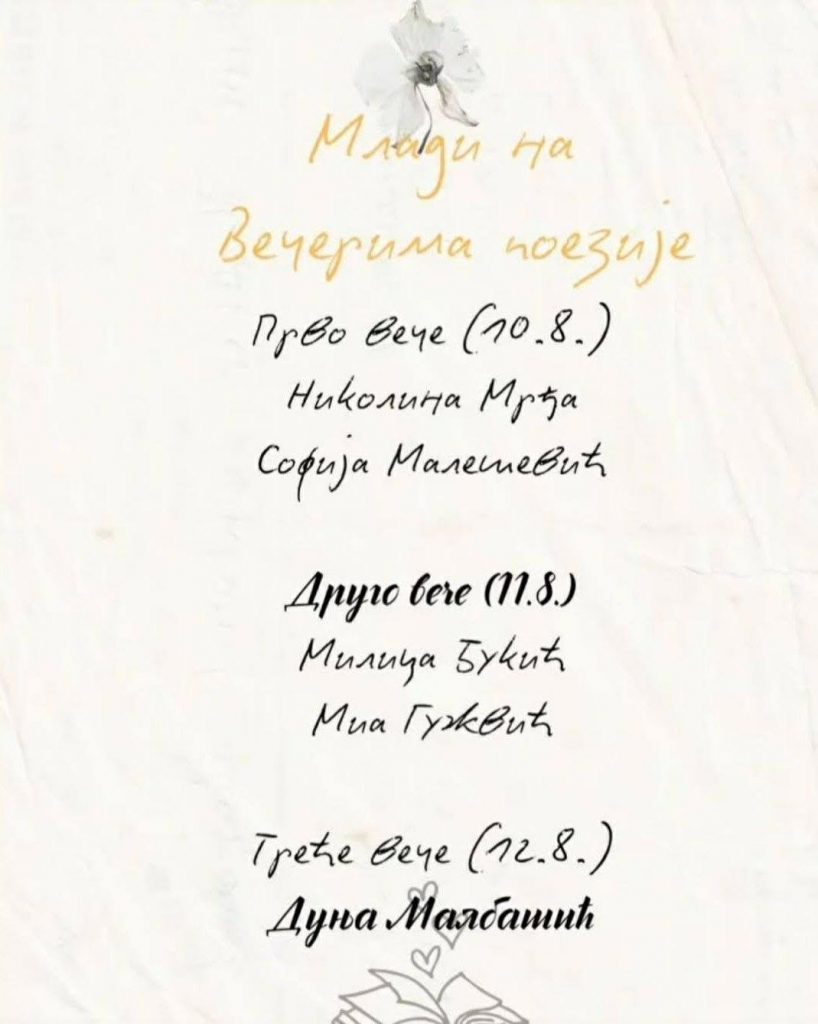 Млади на
Вечерима поезије
Прво вече (10.8.)
Николина Мрђа
Софија Малешевић
Друго вече (11.8.)
Милица Ђукић
Миа Гужвић
Треће вече (12.8.)
Дуња Малбашић